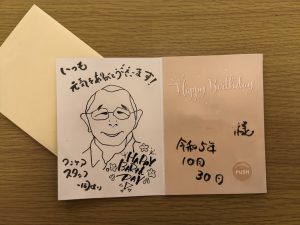 いつも
元気をありがとうございます!
HAPPY
BIRTH
DAY
スタッフ
一同より
Happy Birthday
様
令和5年
10月
30日
PUSH